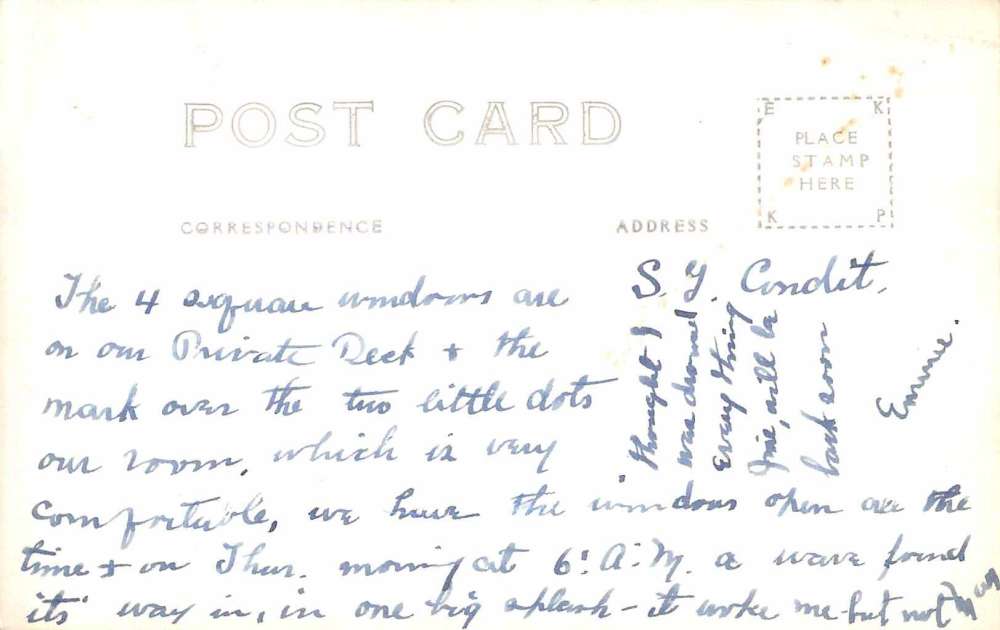 POST CARD
E K
PLACE
STAMP
HERE
K P
CORRESPONDENCE
ADDRESS
The 4 square windows are
on our Private Deck + the
mark over the two little dots
our room, which is very
comfortable, we have the windows open all the
time + on Thur. morning at 6: A.M. a wave found
its' way in, in one big splash - it woke me but not May
S. Y. Condit,
thought I
was drowned
Everything
fine, will be
back soon
Emmie.